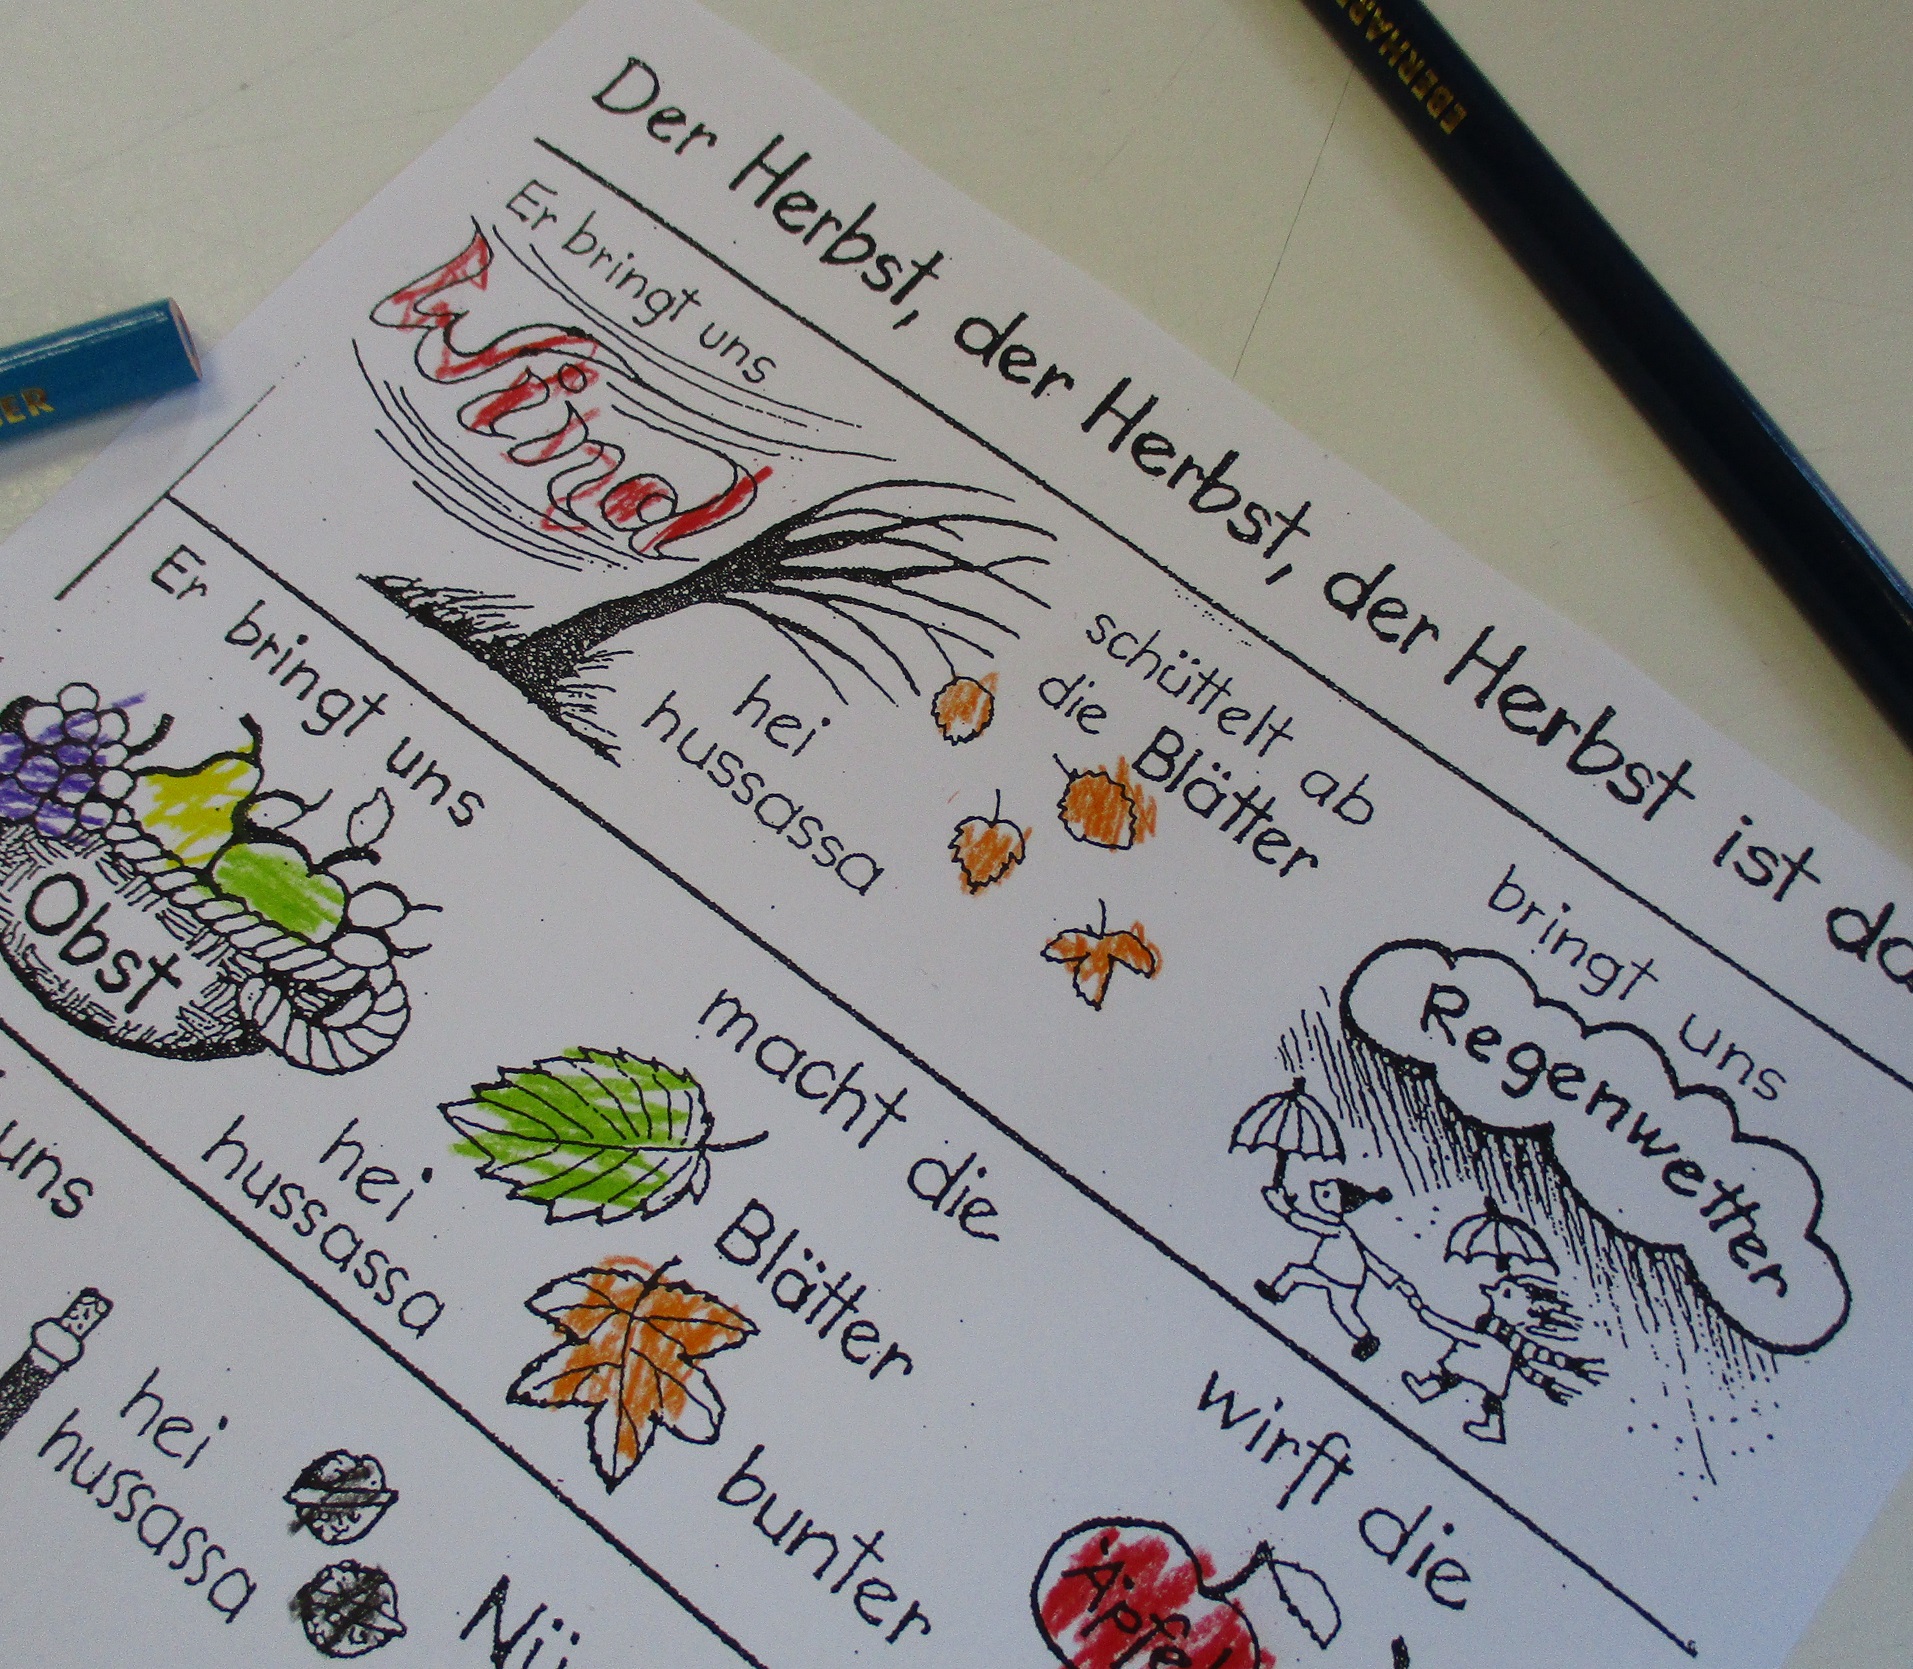 Der Herbst, der Herbst, der Herbst ist da
Er bringt uns
Wind
hei
hussassa
schüttelt ab
die Blätter
bringt uns
Regenwetter
Er bringt uns
Obst
hei
hussassa
macht die
Blätter
bunter
wirft die
Äpfel
uns
hei
hussassa
EBERHARD